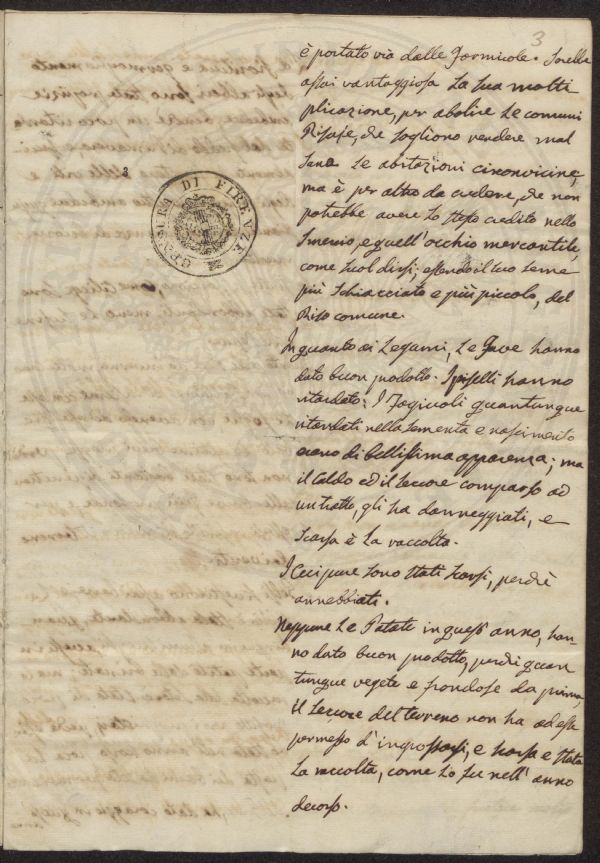 3
è portato via dalle Formicole. Sarebbe
assai vantaggiosa la sua molti
plicazione, per abolire le comuni
Risaje, che sogliono rendere mal
sane le abitazioni circonvicine;
ma è per altro da credere, che non
potrebbe avere lo stesso credito nello
smercio, e quell'occhio mercantile,
come suol dirsi, essendo il suo seme
più schiacciato e più piccolo, del
Riso comune.
In quanto ai Legumi, Le Fave hanno
dato buon prodotto. I piselli hanno
ritardato. I Fagiuoli quantunque
ritardati nella sementa e nascimento
erano di bellissima apparenza; ma
il Caldo ed il seccore comparso ad
un tratto, gli ha danneggiati, e
scarsa è la raccolta.
I Ceci pure sono stati scarsi, perchè
annebbiati.
Neppure Le Patate in quest'anno, han-
no dato buon prodotto, perchè quan
tunque vegete e frondose da prima,
il seccore del terreno non ha ad esse
permesso d'ingrossarsi, e scarsa è stata
la raccolta, come lo fu nell'anno
decorso.
CENSURA DI FIRENZE